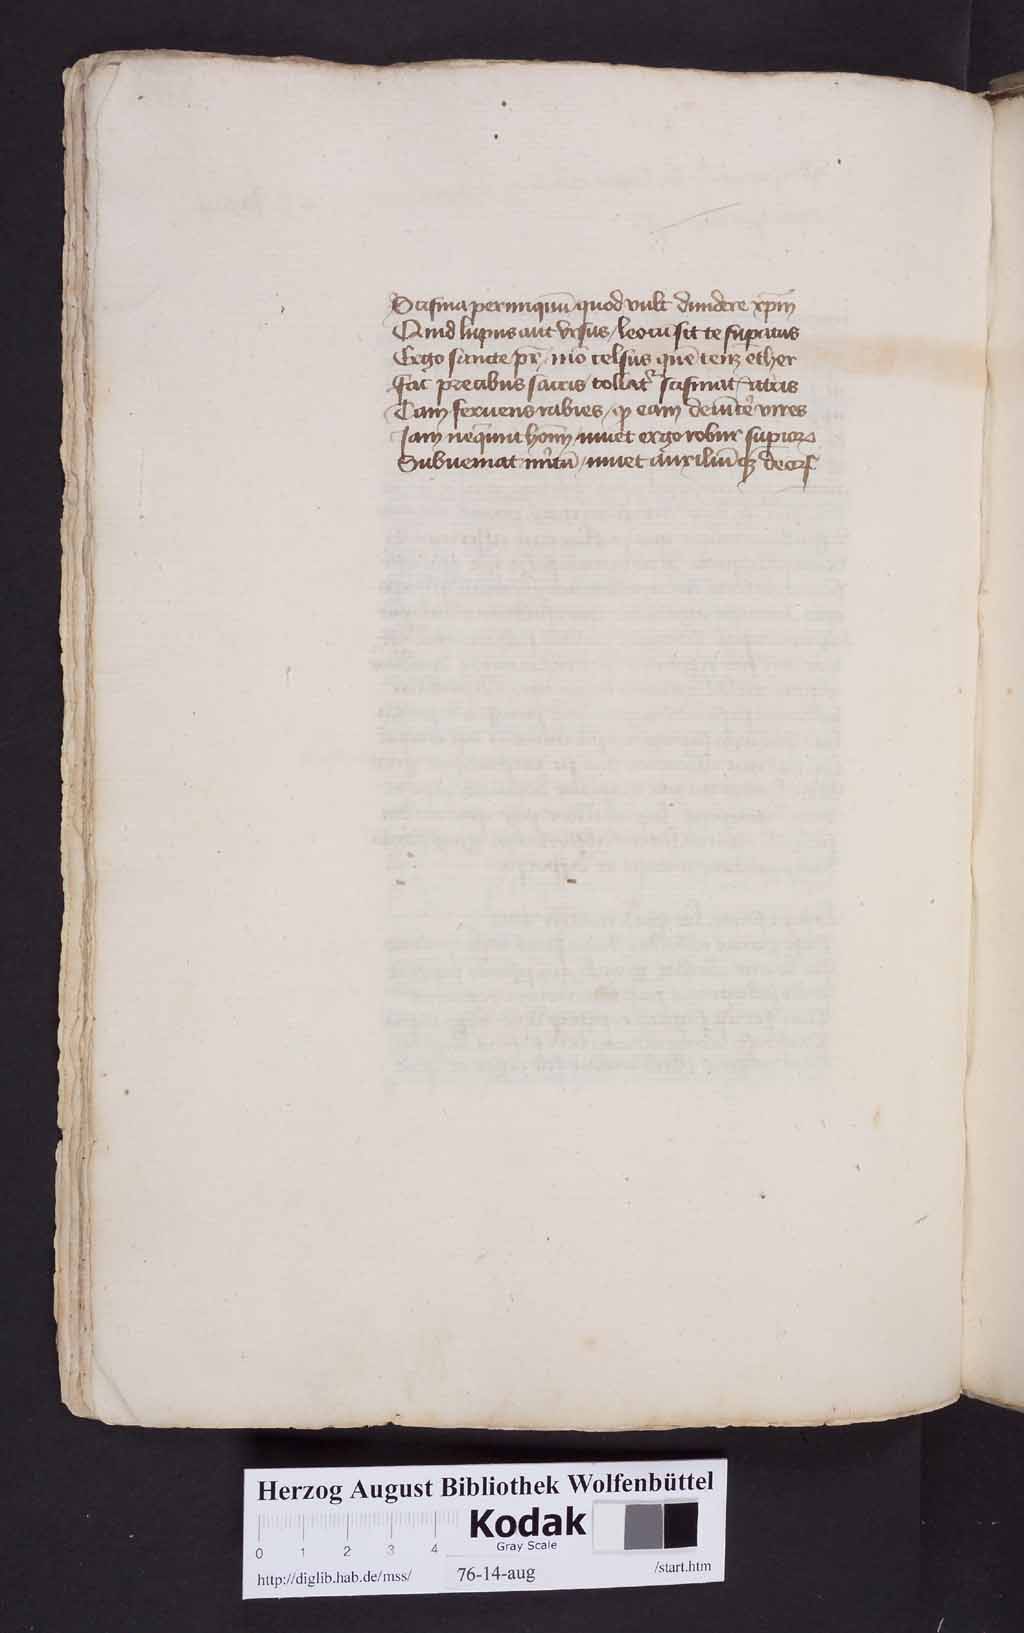 Scisma per iniquũ quod vult diuidere xp̄m
Quid lupus aut vrsus / leo cũ sit te supatus
Ergo sancte pr̄ / nũc celsus quē tenꝫ ether
Fac precibus sacris tollat᷑ scismat atris
Tam feruens rabies / ꝙ eam deuīcẽ vires
Jam nequeunt hoīm / iuuet ergo robur supioꝝ
Subueniat mĩtũ / iuuet auxiliũqꝫ deoꝝ
Herzog August Bibliothek Wolfenbüttel
Kodak
Gray Scale
0 1 2 3 4
http://diglib.hab.de/mss/ 76-14-aug /start.htm